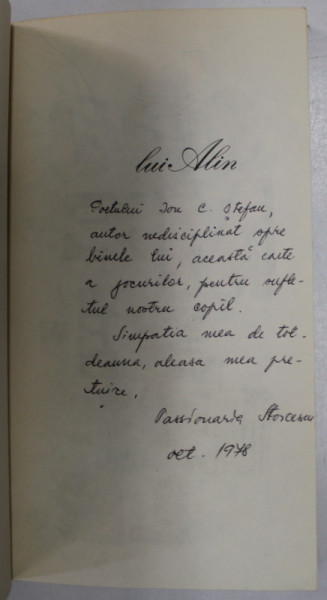 lui Alin
Poetului Ion C. Ștefan,
autor nedisciplinat spre
binele lui, această carte
a jocurilor, pentru sufle-
tul nostru copil.
Simpatia mea de tot-
deauna, aleasa mea pre-
țuire,
Passionaria Stoicescu
oct. 1978